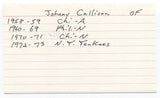 Johnny Callison OF
1958-59 Chi-A
1960-69 Phil-N
1970-71 Chi-N
1972-73 N.Y. Yankees